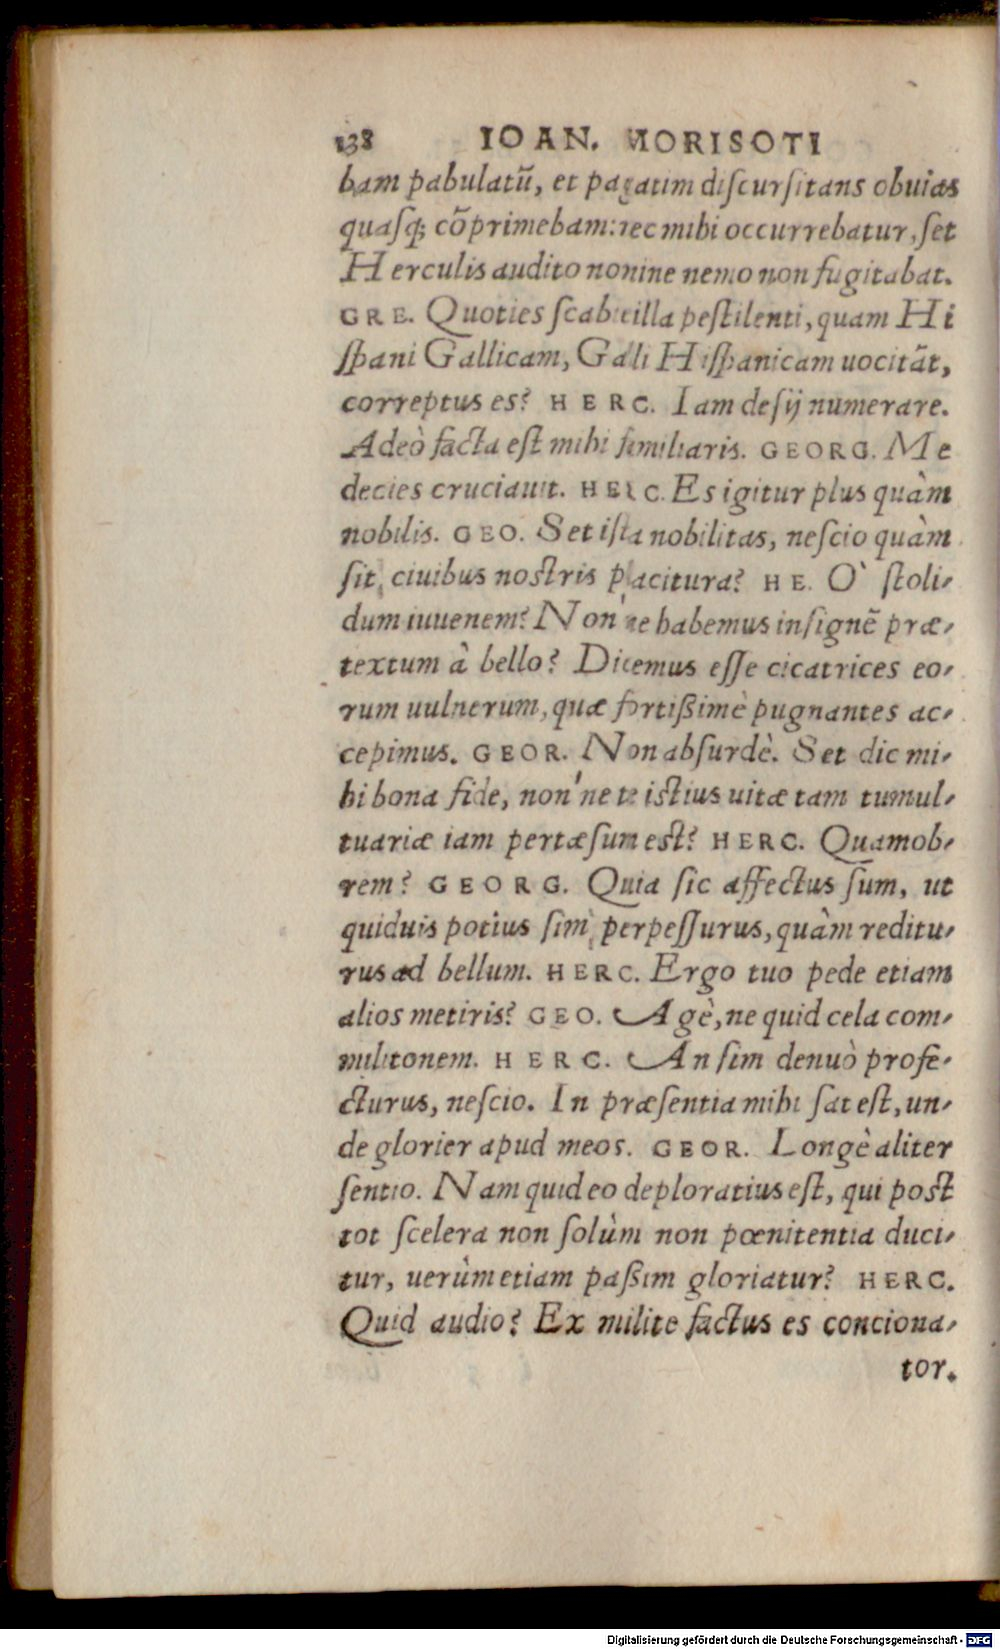 138 IOAN. MORISOTI
bam pabulatũ, et pagatim discursitans obuias
quasq; cõprimebam: nec mihi occurrebatur, set
Herculis audito nomine nemo non fugitabat.
GRE. Quoties scabie illa pestilenti, quam Hi
spani Gallicam, Galli Hispanicam uocitãt,
correptus es? HERC. Iam desij numerare.
Adeò facta est mihi familiaris. GEORG. Me
decies cruciauit. HERC. Es igitur plus quàm
nobilis. GEO. Set ista nobilitas, nescio quàm
sit ciuibus nostris placitura? HE. O` stoli-
dum iuuenem? Non'ne habemus insignẽ præ-
textum à bello? Dicemus esse cicatrices eo-
rum uulnerum, quæ fortißimè pugnantes ac-
cepimus. GEOR. Non absurdè. Set dic mi-
hi bona fide, non'ne te istius uitæ tam tumul-
tuariæ iam pertæsum est? HERC. Quamob-
rem? GEORG. Quia sic affectus sum, ut
quiduis potius sim perpessurus, quàm reditu-
rus ad bellum. HERC. Ergo tuo pede etiam
alios metiris? GEO. Agè, ne quid cela com-
militonem. HERC. An sim denuò profe-
cturus, nescio. In præsentia mihi sat est, un-
de glorier apud meos. GEOR. Longè aliter
sentio. Nam quid eo deploratius est, qui post
tot scelera non solùm non pœnitentia duci-
tur, uerùm etiam paßim gloriatur? HERC.
Quid audio? Ex milite factus es conciona-
tor.
Digitalisierung gefördert durch die Deutsche Forschungsgemeinschaft - DFG